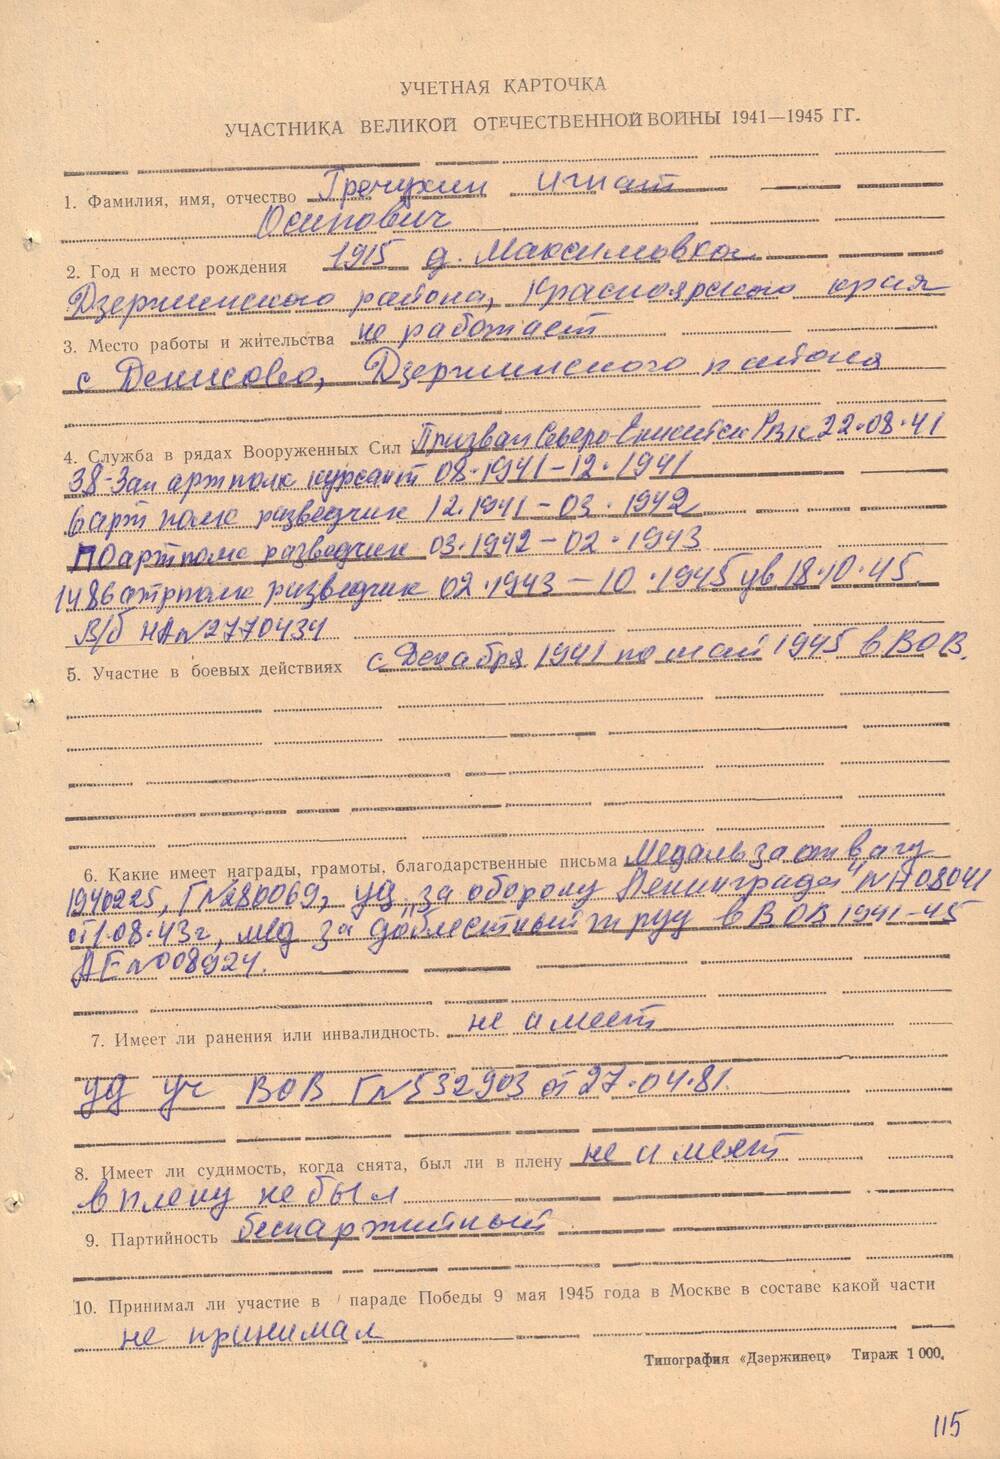 УЧЕТНАЯ КАРТОЧКА
УЧАСТНИКА ВЕЛИКОЙ ОТЕЧЕСТВЕННОЙ ВОЙНЫ 1941—1945 ГГ.
1. Фамилия, имя, отчество Гречухин Игнат
Осипович
2. Год и место рождения 1915 д. Максимовка
Дзержинского района, Красноярского края
3. Место работы и жительства не работает
с Денисово, Дзержинского района
4. Служба в рядах Вооруженных Сил Призван Северо-Енисейск РВК 22.08.41
38-Зап артполк курсант 08.1941-12.1941
6 арт полк разведчик 12.1941-03.1942
артполк разведчик 03.1942-02.1943
1486 артполк разведчик 02.1943-10.1945 ув 18.10.45.
В/б НА№2770434
5. Участие в боевых действиях с Декабря 1941 по май 1945 в ВОВ.
6. Какие имеет награды, грамоты, благодарственные письма Медаль за отвагу
1940225, Г№280069, уд „за оборону Ленинграда" №Н08041
от 1.08.43г, мед за доблестный труд в ВОВ 1941-45
АЕ№008924.
7. Имеет ли ранения или инвалидность. не имеет
уд уч ВОВ Г№532903 от 27.04.81.
8. Имеет ли судимость, когда снята, был ли в плену не имеет
в плену не был
9. Партийность беспартийный
10. Принимал ли участие в параде Победы 9 мая 1945 года в Москве в составе какой части
не принимал
Типография «Дзержинец» Тираж 1 000.
115